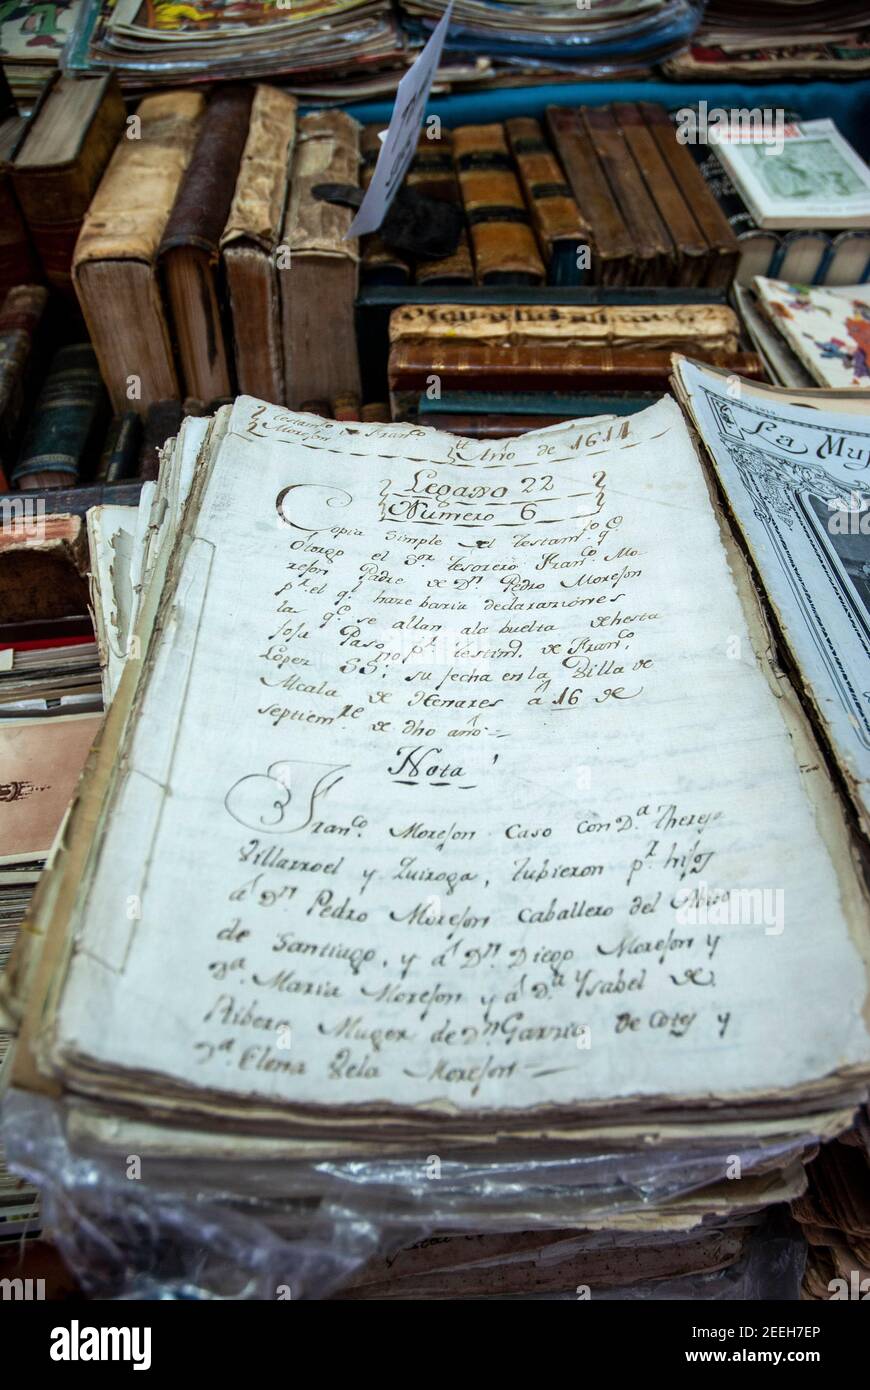 Testamto de Franco
Morejon
Año de 1611
Legaxo 22
Numero 6
Copia simple del Testamto qe
Otorgo el Sor Tesorero Franco Mo-
rejon Padre de Dn Pedro Morejon
pr el qe hace varia declaraziones
la qe se allan ala buelta de hesta
foja Paso pr testimo de Franco
López SSno; su fecha en la Villa de
Alcala de Henares á 16 de
septiemre de dho año =
Nota
Franco Morejon Caso con Da Theresa
Villarroel y Quiroga, tubieron pr hijos
á Dn Pedro Morejon Caballero del Abito
de Santiago, y á Dn Diego Morejon y
Da Maria Morejon y á Da Ysabel de
Ribera Muger de Dn Garzia de Cotes y
Da Elena Vela Morejon
La Muj
alamy
alamy
Image ID: 2EEH7EP
www.alamy.com